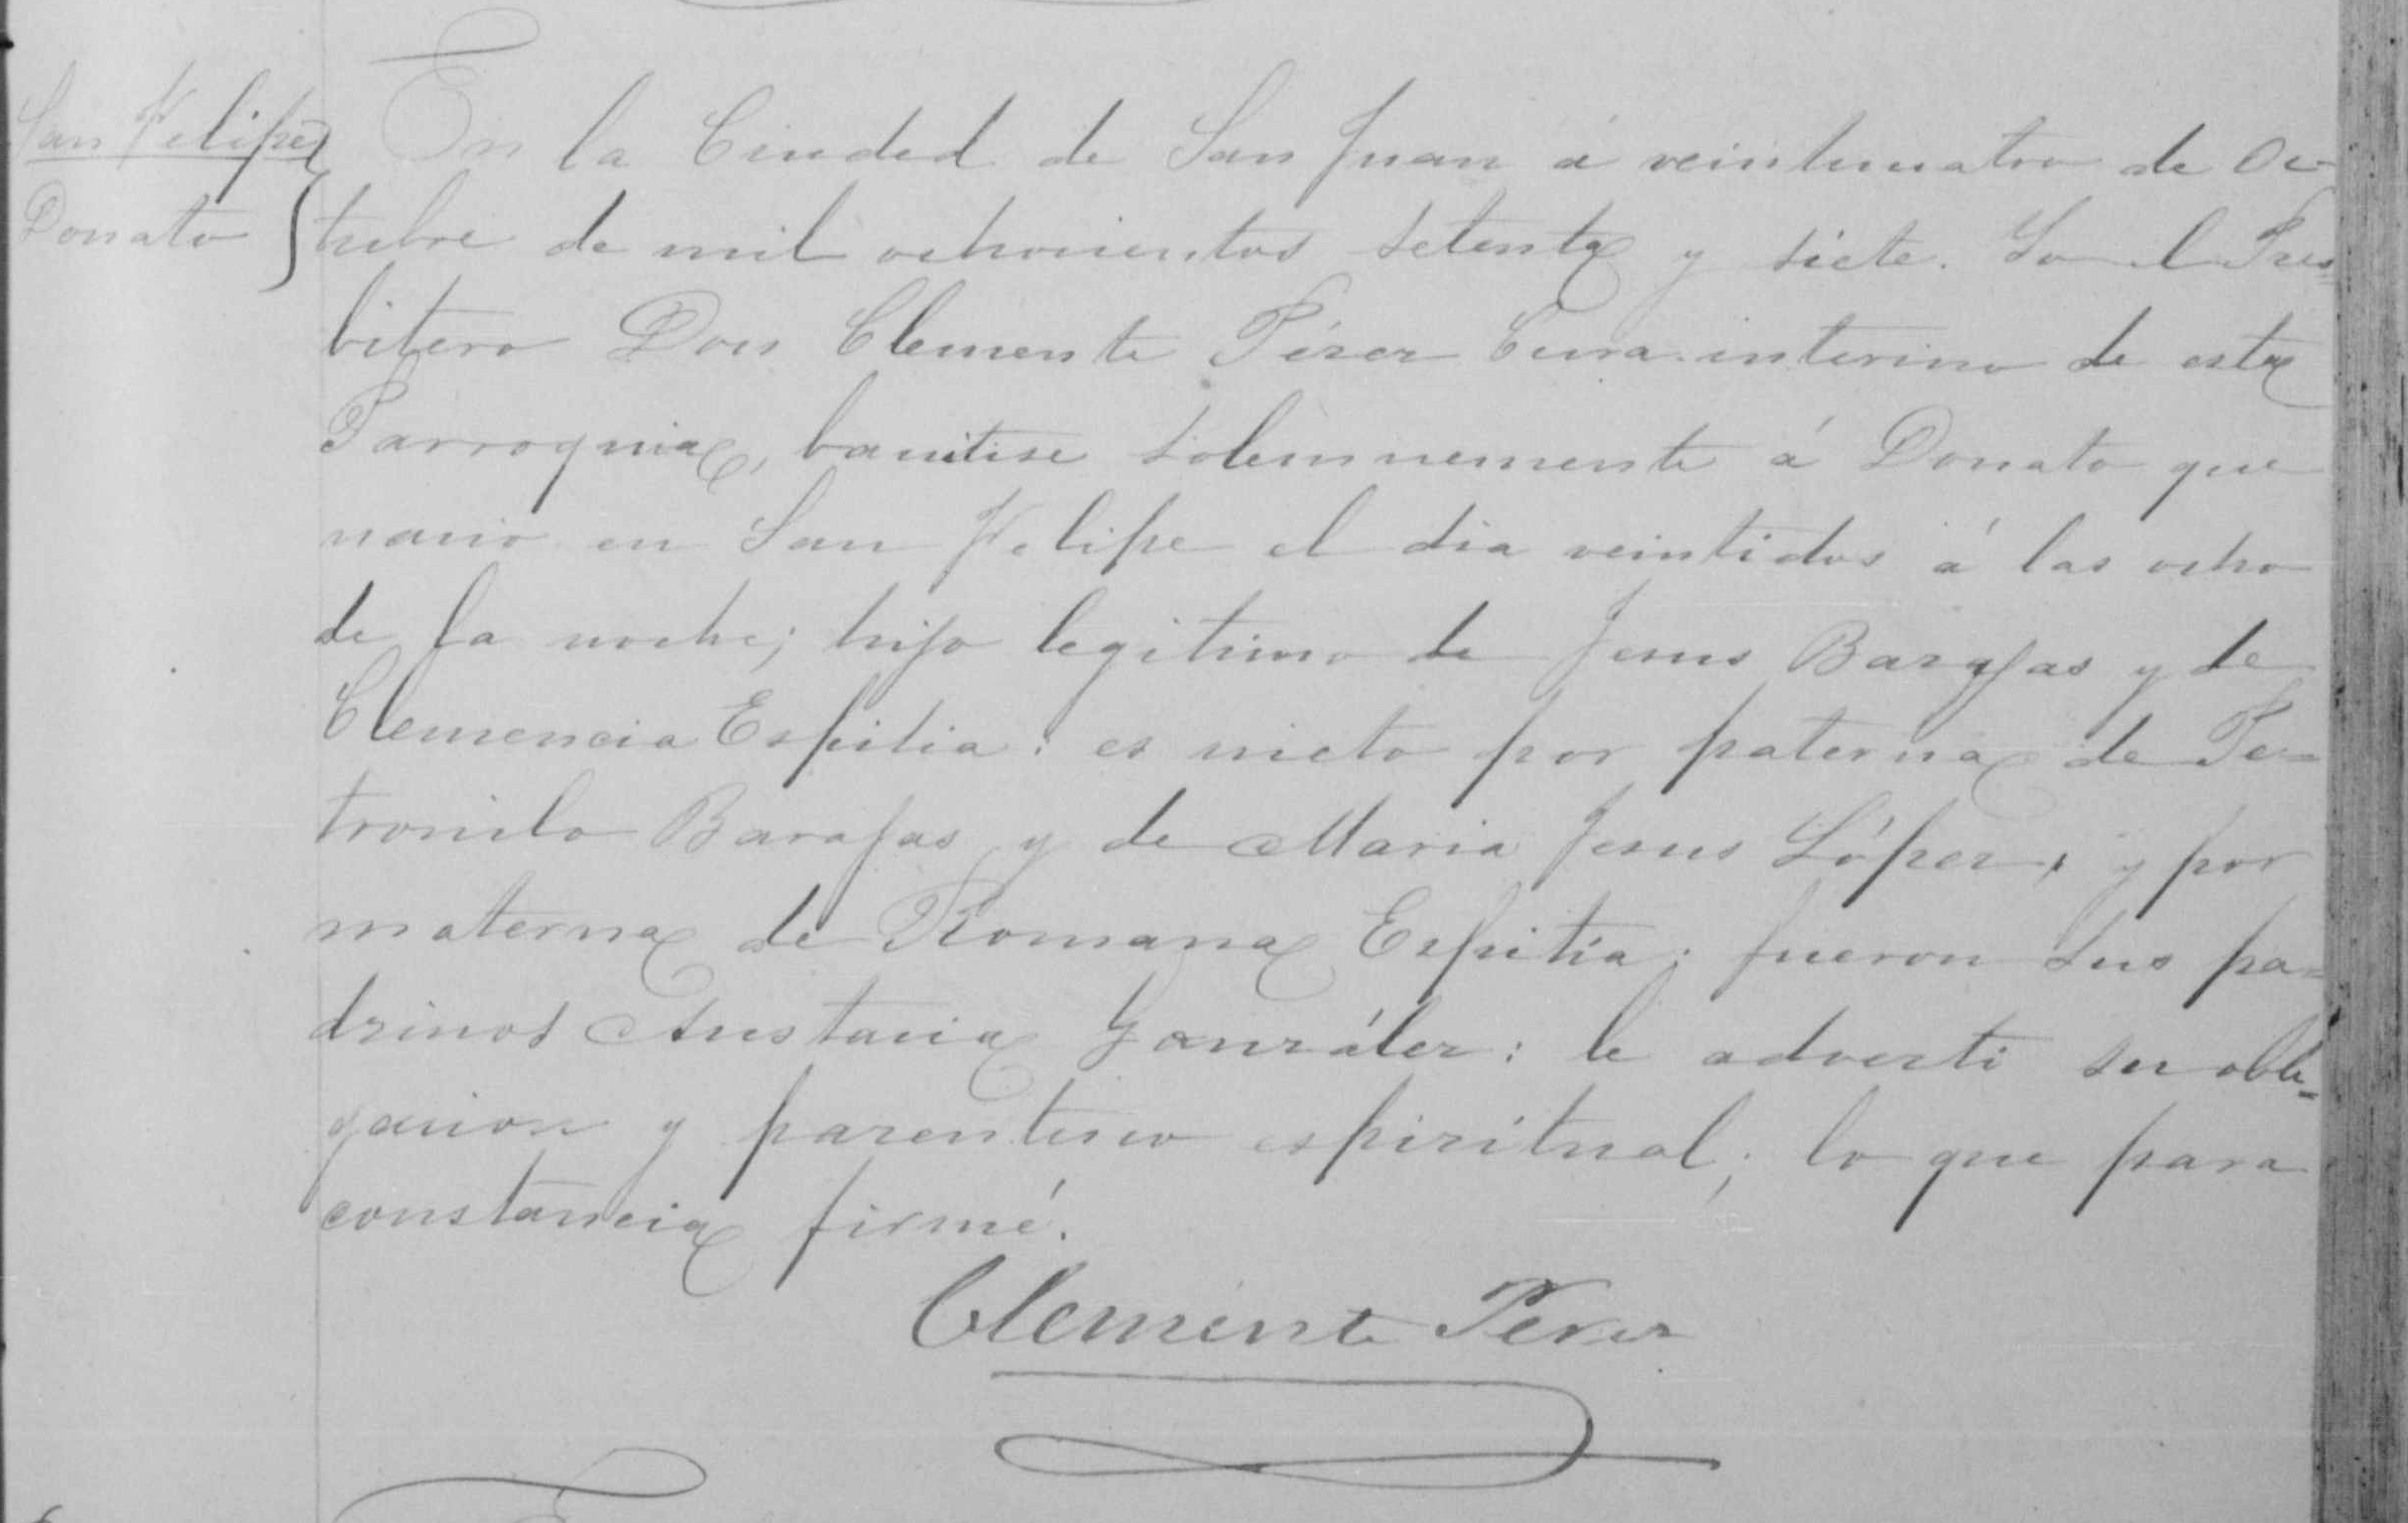 San Felipe
Donato
En la Ciudad de San Juan á veinticuatro de Oc-
tubre de mil ochocientos setenta y siete. Yo el Pres=
bitero Don Clemente Pérez Cura interino de esta
Parroquia, bautise solemnemente á Donato que
nacio en San Felipe el dia veintidos á las ocho
de la noche; hijo legitimo de Jesus Barajas y de
Clemencia Espitia: es nieto por paterna de Pe=
tronilo Barajas y de Maria Jesus López, y por
materna de Romana Espitia; fueron sus pa=
drinos González: le adverti su obli=
gacion y parentesco espiritual; lo que para
constancia firmé.
Clemente Pérez